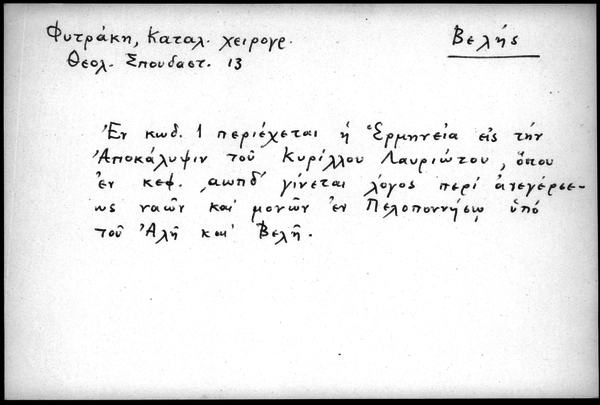 Φυτράκη, Καταλ. χειρογρ.
Βελής
Θεολ. Σπουδαστ. 13
Ἐν κωδ. 1 περιέχεται ἡ Ἑρμηνεία εἰς τήν
Ἀποκάλυψιν τοῦ Κυρίλλου Λαυριώτου, ὅπου
ἐν κεφ. ͵αωπδ' γίνεται λόγος περί ἀνεγέρσε-
ως ναῶν καί μονῶν ἐν Πελοποννήσῳ ὑπό
τοῦ Ἀλῆ καί Βελῆ.